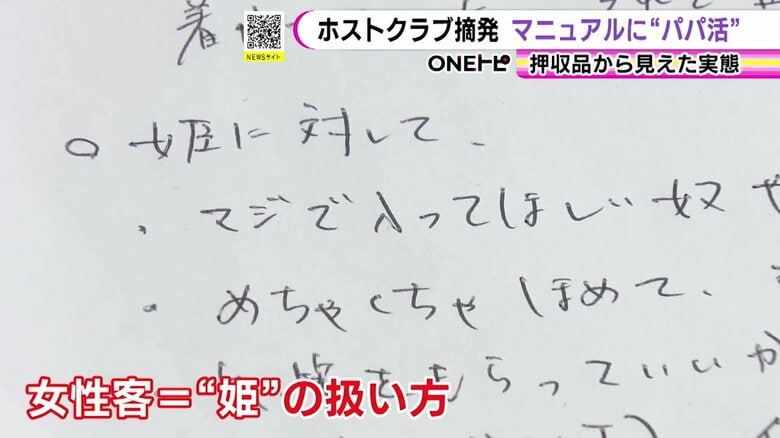 ホストクラブ摘発 マニュアルに“パパ活”
NEWSサイト
ONEトピ
押収品から見えた実態
着
○ 姫に対して、
・マジで入ってほしい奴や
・めちゃくちゃほめて、
をもらっていいか
女性客＝“姫”の扱い方